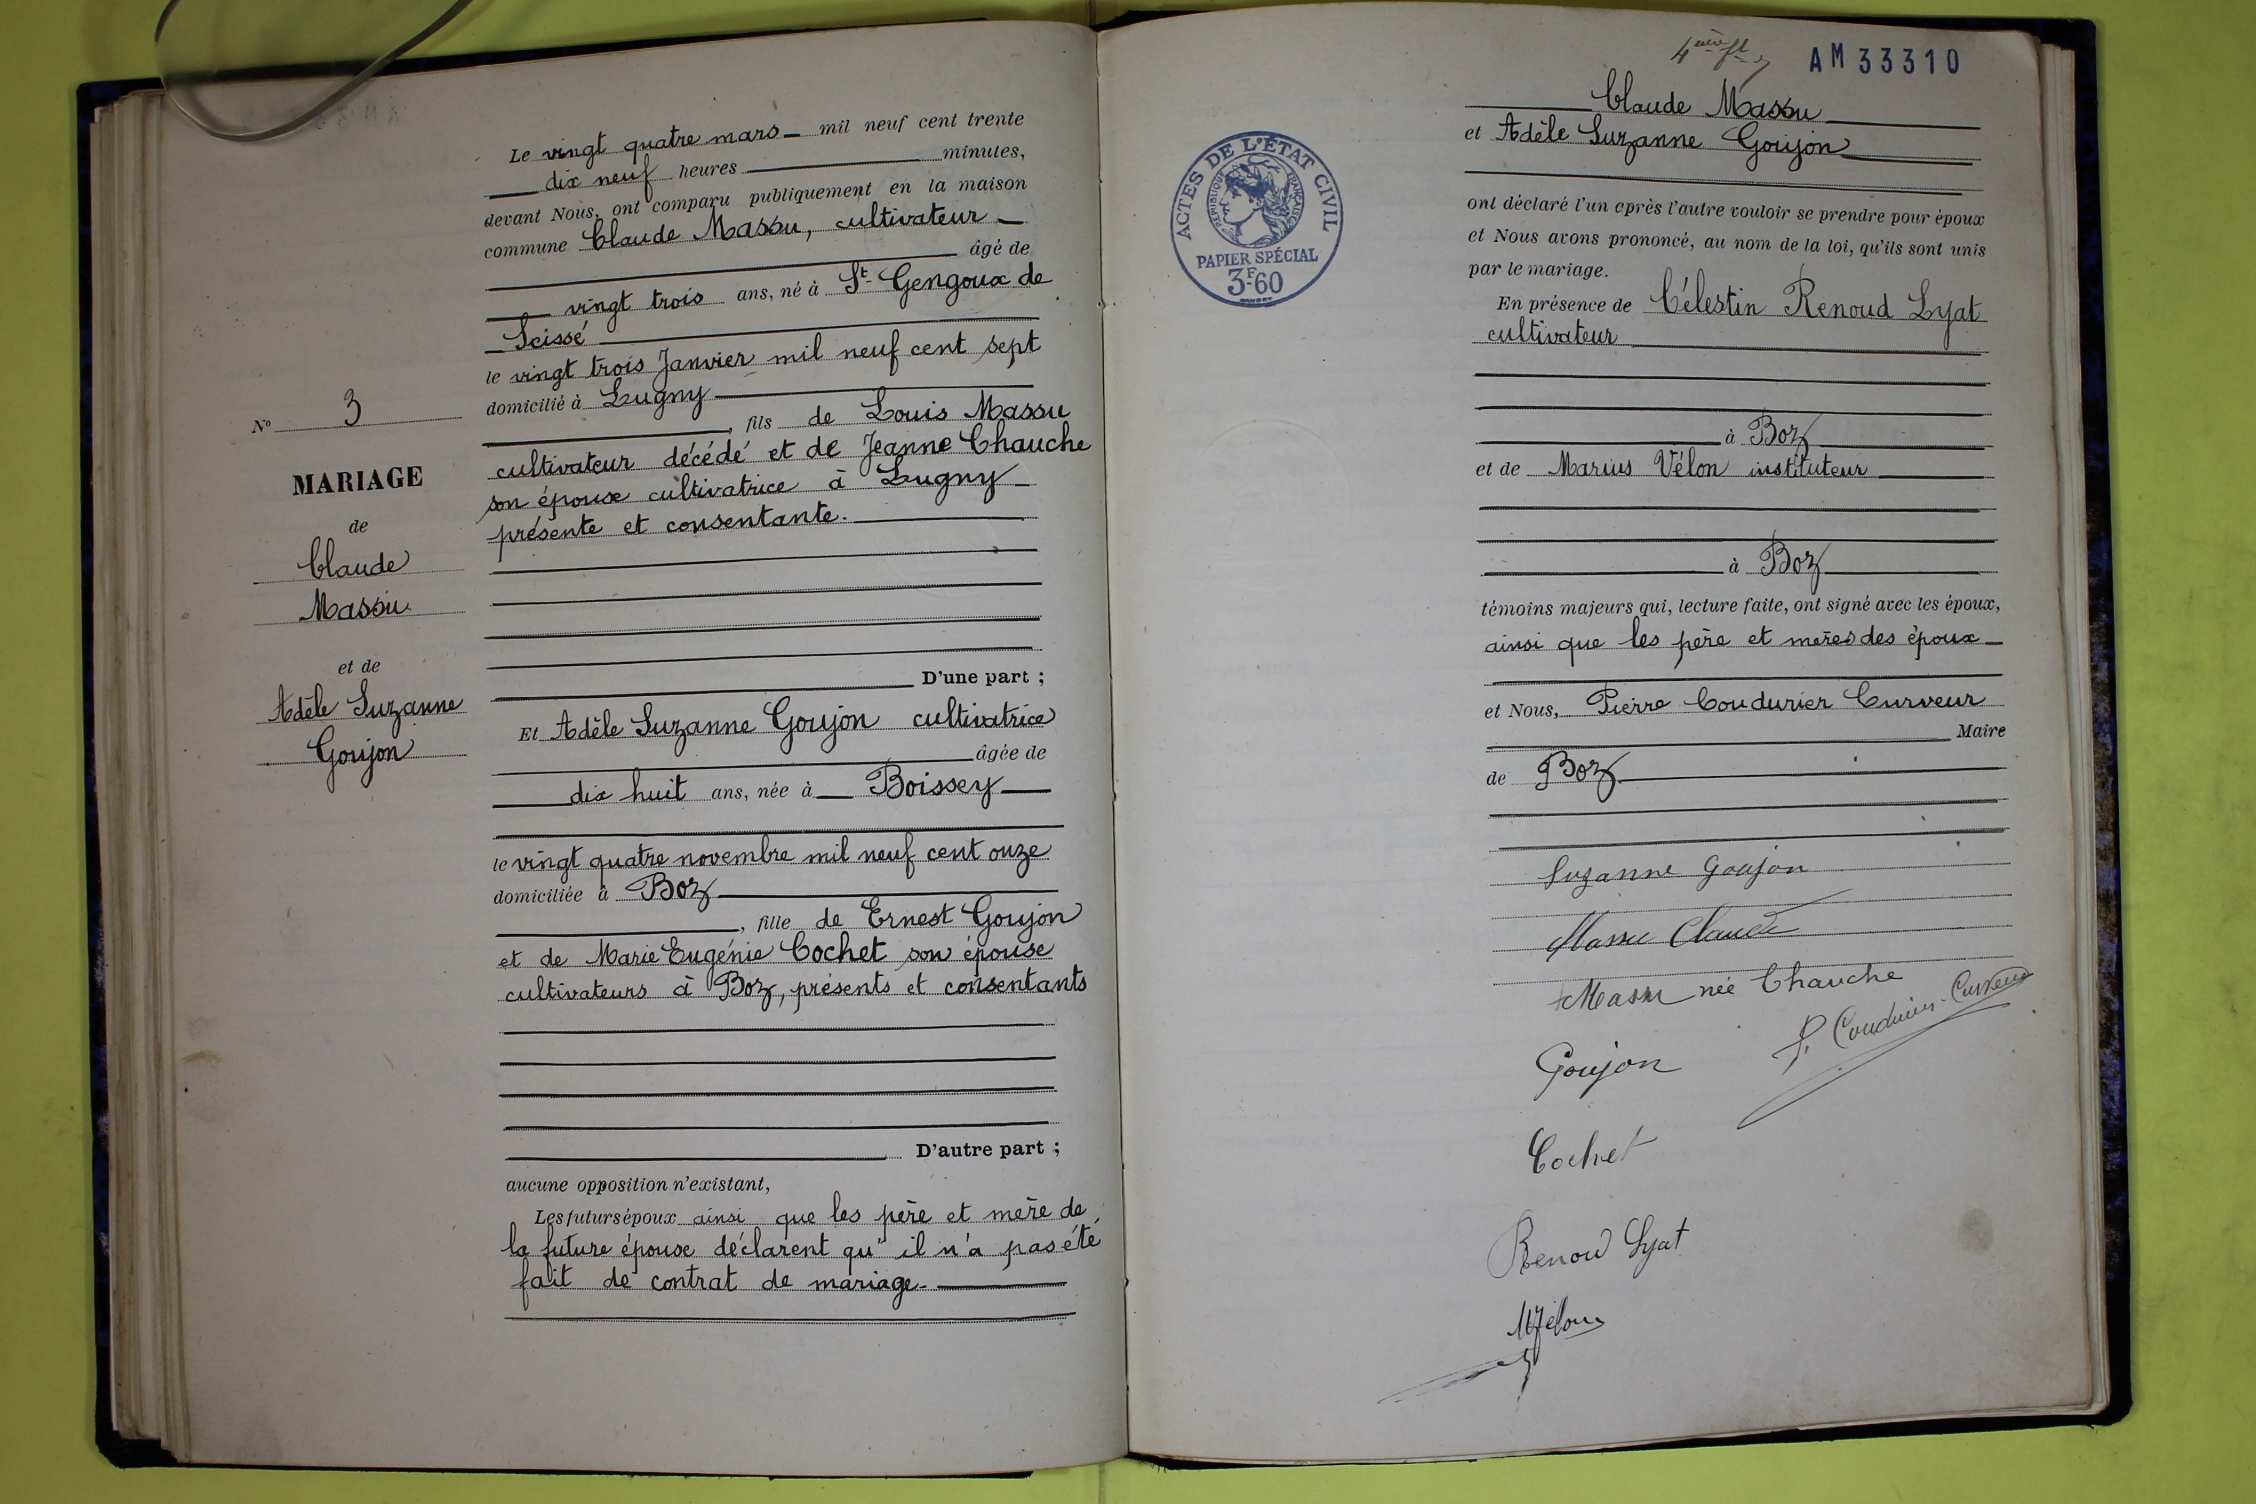 Le vingt quatre mars mil neuf cent trente
dix neuf heures minutes,
devant Nous, ont comparu publiquement en la maison
commune Claude Massu, cultivateur
âgé de
vingt trois ans, né à St Gengoux de
Scissé
le vingt trois Janvier mil neuf cent sept
domicilié à Lugny
, fils de Louis Massu
cultivateur décédé et de Jeanne Chauche
son épouse cultivatrice à Lugny
présente et consentante.
D'une part ;
Et Adèle Suzanne Goujon cultivatrice
âgée de
dix huit ans, née à Boissey
le vingt quatre novembre mil neuf cent onze
domiciliée à Boz
, fille de Ernest Goujon
et de Marie Eugénie Cochet son épouse
cultivateurs à Boz, présents et consentants
D'autre part ;
aucune opposition n'existant,
Les futurs époux ainsi que les père et mère de
la future épouse déclarent qu'il n'a pas été
fait de contrat de mariage.
No 3
MARIAGE
de
Claude
Massu
et de
Adèle Suzanne
Goujon
AM 33310
ACTES DE L'ÉTAT CIVIL
RÉPUBLIQUE FRANÇAISE
PAPIER SPÉCIAL
3F.60
Claude Massu
et Adèle Suzanne Goujon
ont déclaré l'un après l'autre vouloir se prendre pour époux
et Nous avons prononcé, au nom de la loi, qu'ils sont unis
par le mariage.
En présence de Célestin Renoud Lyat
cultivateur
à Boz
et de Marius Vélon instituteur
à Boz
témoins majeurs qui, lecture faite, ont signé avec les époux,
ainsi que les père et mères des époux
et Nous, Pierre Coudurier Curveur
Maire
de Boz
Suzanne Goujon
Massu Claude
Massu née Chauche
P. Coudurier-Curveur
Goujon
Cochet
Renoud Lyat
MVélon